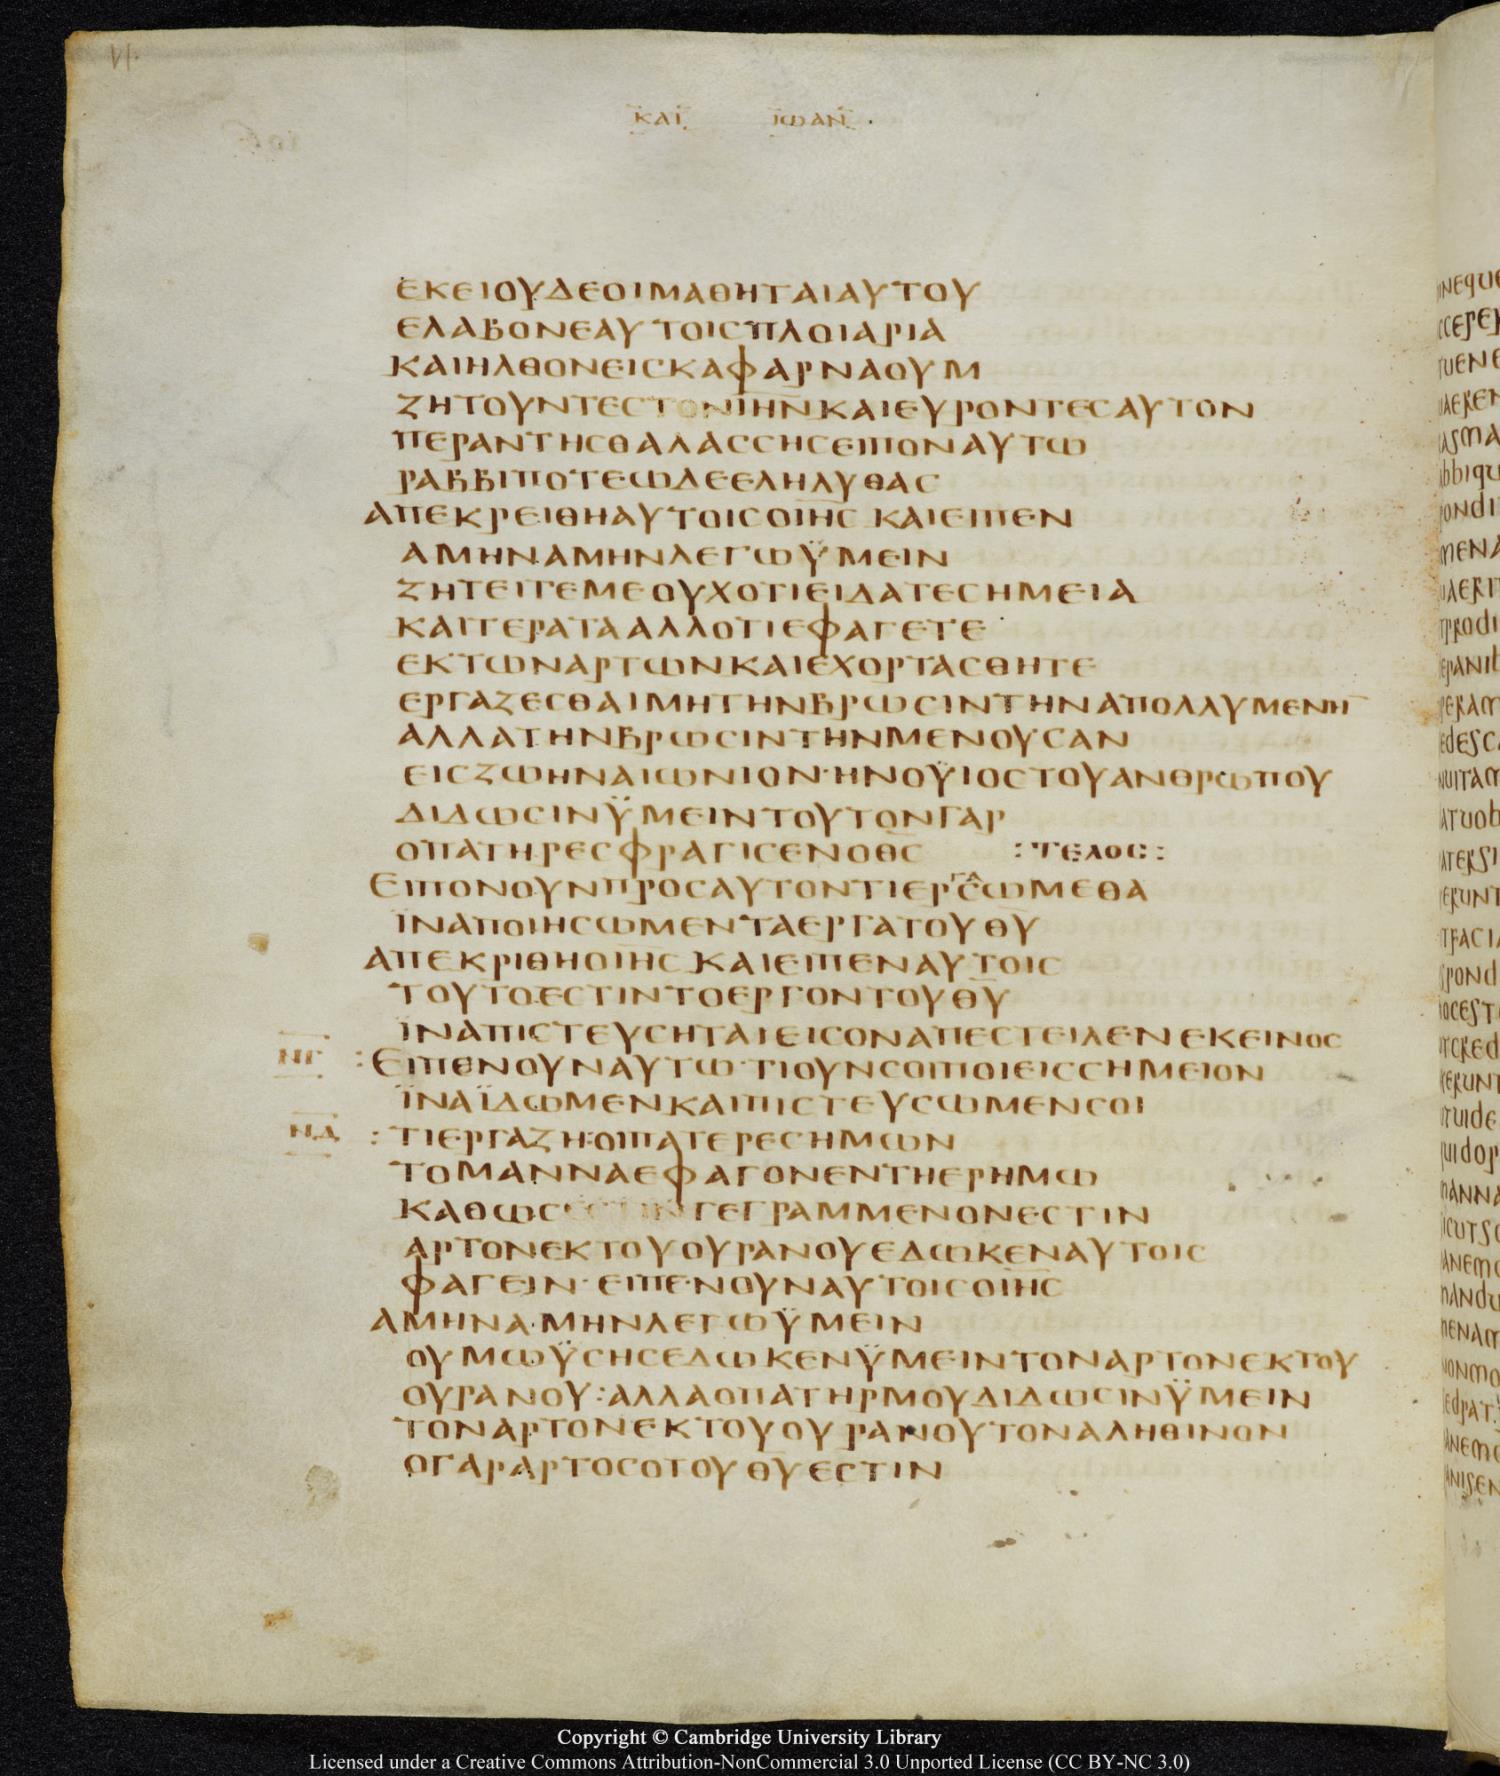 VI.
ΚΑΙ ΙΩΑΝ
ΕΚΕΙΟΥΔΕΟΙΜΑΘΗΤΑΙΑΥΤΟΥ
ΕΛΑΒΟΝΕΑΥΤΟΙСΠΛΟΙΑΡΙΑ
ΚΑΙΗΛΘΟΝΕΙСΚΑΦΑΡΝΑΟΥΜ
ΖΗΤΟΥΝΤΕСΤΟΝΙΗΝΚΑΙΕΥΡΟΝΤΕСΑΥΤΟΝ
ΠΕΡΑΝΤΗСΘΑΛΑССΗСΕΙΠΟΝΑΥΤΩ
ΡΑΒΒΙΠΟΤΕΩΔΕΕΛΗΛΥΘΑС
ΑΠΕΚΡΕΙΘΗΑΥΤΟΙСΟΙΗС ΚΑΙΕΙΠΕΝ
ΑΜΗΝΑΜΗΝΛΕΓΩΫΜΕΙΝ
ΖΗΤΕΙΤΕΜΕΟΥΧΟΤΙΕΙΔΑΤΕСΗΜΕΙΑ
ΚΑΙΤΕΡΑΤΑΑΛΛΟΤΙΕΦΑΓΕΤΕ
ΕΚΤΩΝΑΡΤΩΝΚΑΙΕΧΟΡΤΑСΘΗΤΕ
ΕΡΓΑΖΕСΘΑΙΜΗΤΗΝΒΡΩСΙΝΤΗΝΑΠΟΛΛΥΜΕΝΗ̅
ΑΛΛΑΤΗΝΒΡΩСΙΝΤΗΝΜΕΝΟΥСΑΝ
ΕΙСΖΩΗΝΑΙΩΝΙΟΝ·ΗΝΟΫΙΟСΤΟΥΑΝΘΡΩΠΟΥ
ΔΙΔΩСΙΝΫΜΕΙΝΤΟΥΤΟΝΓΑΡ
ΟΠΑΤΗΡΕСΦΡΑΓΙСΕΝΟΘС :ΤΕΛΟС:
ΕΙΠΟΝΟΥΝΠΡΟСΑΥΤΟΝΤΙΕΡΓΑСΩΜΕΘΑ
ΪΝΑΠΟΙΗСΩΜΕΝΤΑΕΡΓΑΤΟΥΘΥ
ΑΠΕΚΡΙΘΗΟΙΗС ΚΑΙΕΙΠΕΝΑΥΤΟΙС
ΤΟΥΤΟΕСΤΙΝΤΟΕΡΓΟΝΤΟΥΘΥ
ΪΝΑΠΙСΤΕΥСΗΤΑΙΕΙСΟΝΑΠΕСΤΕΙΛΕΝΕΚΕΙΝΟС
ΝΓ :ΕΙΠΕΝΟΥΝΑΥΤΩ·ΤΙΟΥΝСΟΙΠΟΙΕΙССΗΜΕΙΟΝ
ΪΝΑΪΔΩΜΕΝΚΑΙΠΙСΤΕΥСΩΜΕΝСΟΙ
ΝΔ :ΤΙΕΡΓΑΖΗ:ΟΙΠΑΤΕΡΕСΗΜΩΝ
ΤΟΜΑΝΝΑΕΦΑΓΟΝΕΝΤΗΕΡΗΜΩ
ΚΑΘΩСΕСΤΙΝΓΕΓΡΑΜΜΕΝΟΝΕСΤΙΝ
ΑΡΤΟΝΕΚΤΟΥΟΥΡΑΝΟΥΕΔΩΚΕΝΑΥΤΟΙС
ΦΑΓΕΙΝ·ΕΙΠΕΝΟΥΝΑΥΤΟΙСΟΙΗС
ΑΜΗΝΑΜΗΝΛΕΓΩΫΜΕΙΝ
ΟΥΜΩΫСΗСΕΔΩΚΕΝΫΜΕΙΝΤΟΝΑΡΤΟΝΕΚΤΟΥ
ΟΥΡΑΝΟΥ:ΑΛΛΑΟΠΑΤΗΡΜΟΥΔΙΔΩСΙΝΫΜΕΙΝ
ΤΟΝΑΡΤΟΝΕΚΤΟΥΟΥΡΑΝΟΥΤΟΝΑΛΗΘΙΝΟΝ
ΟΓΑΡΑΡΤΟСΟΤΟΥΘΥΕСΤΙΝ
Copyright © Cambridge University Library
Licensed under a Creative Commons Attribution-NonCommercial 3.0 Unported License (CC BY-NC 3.0)